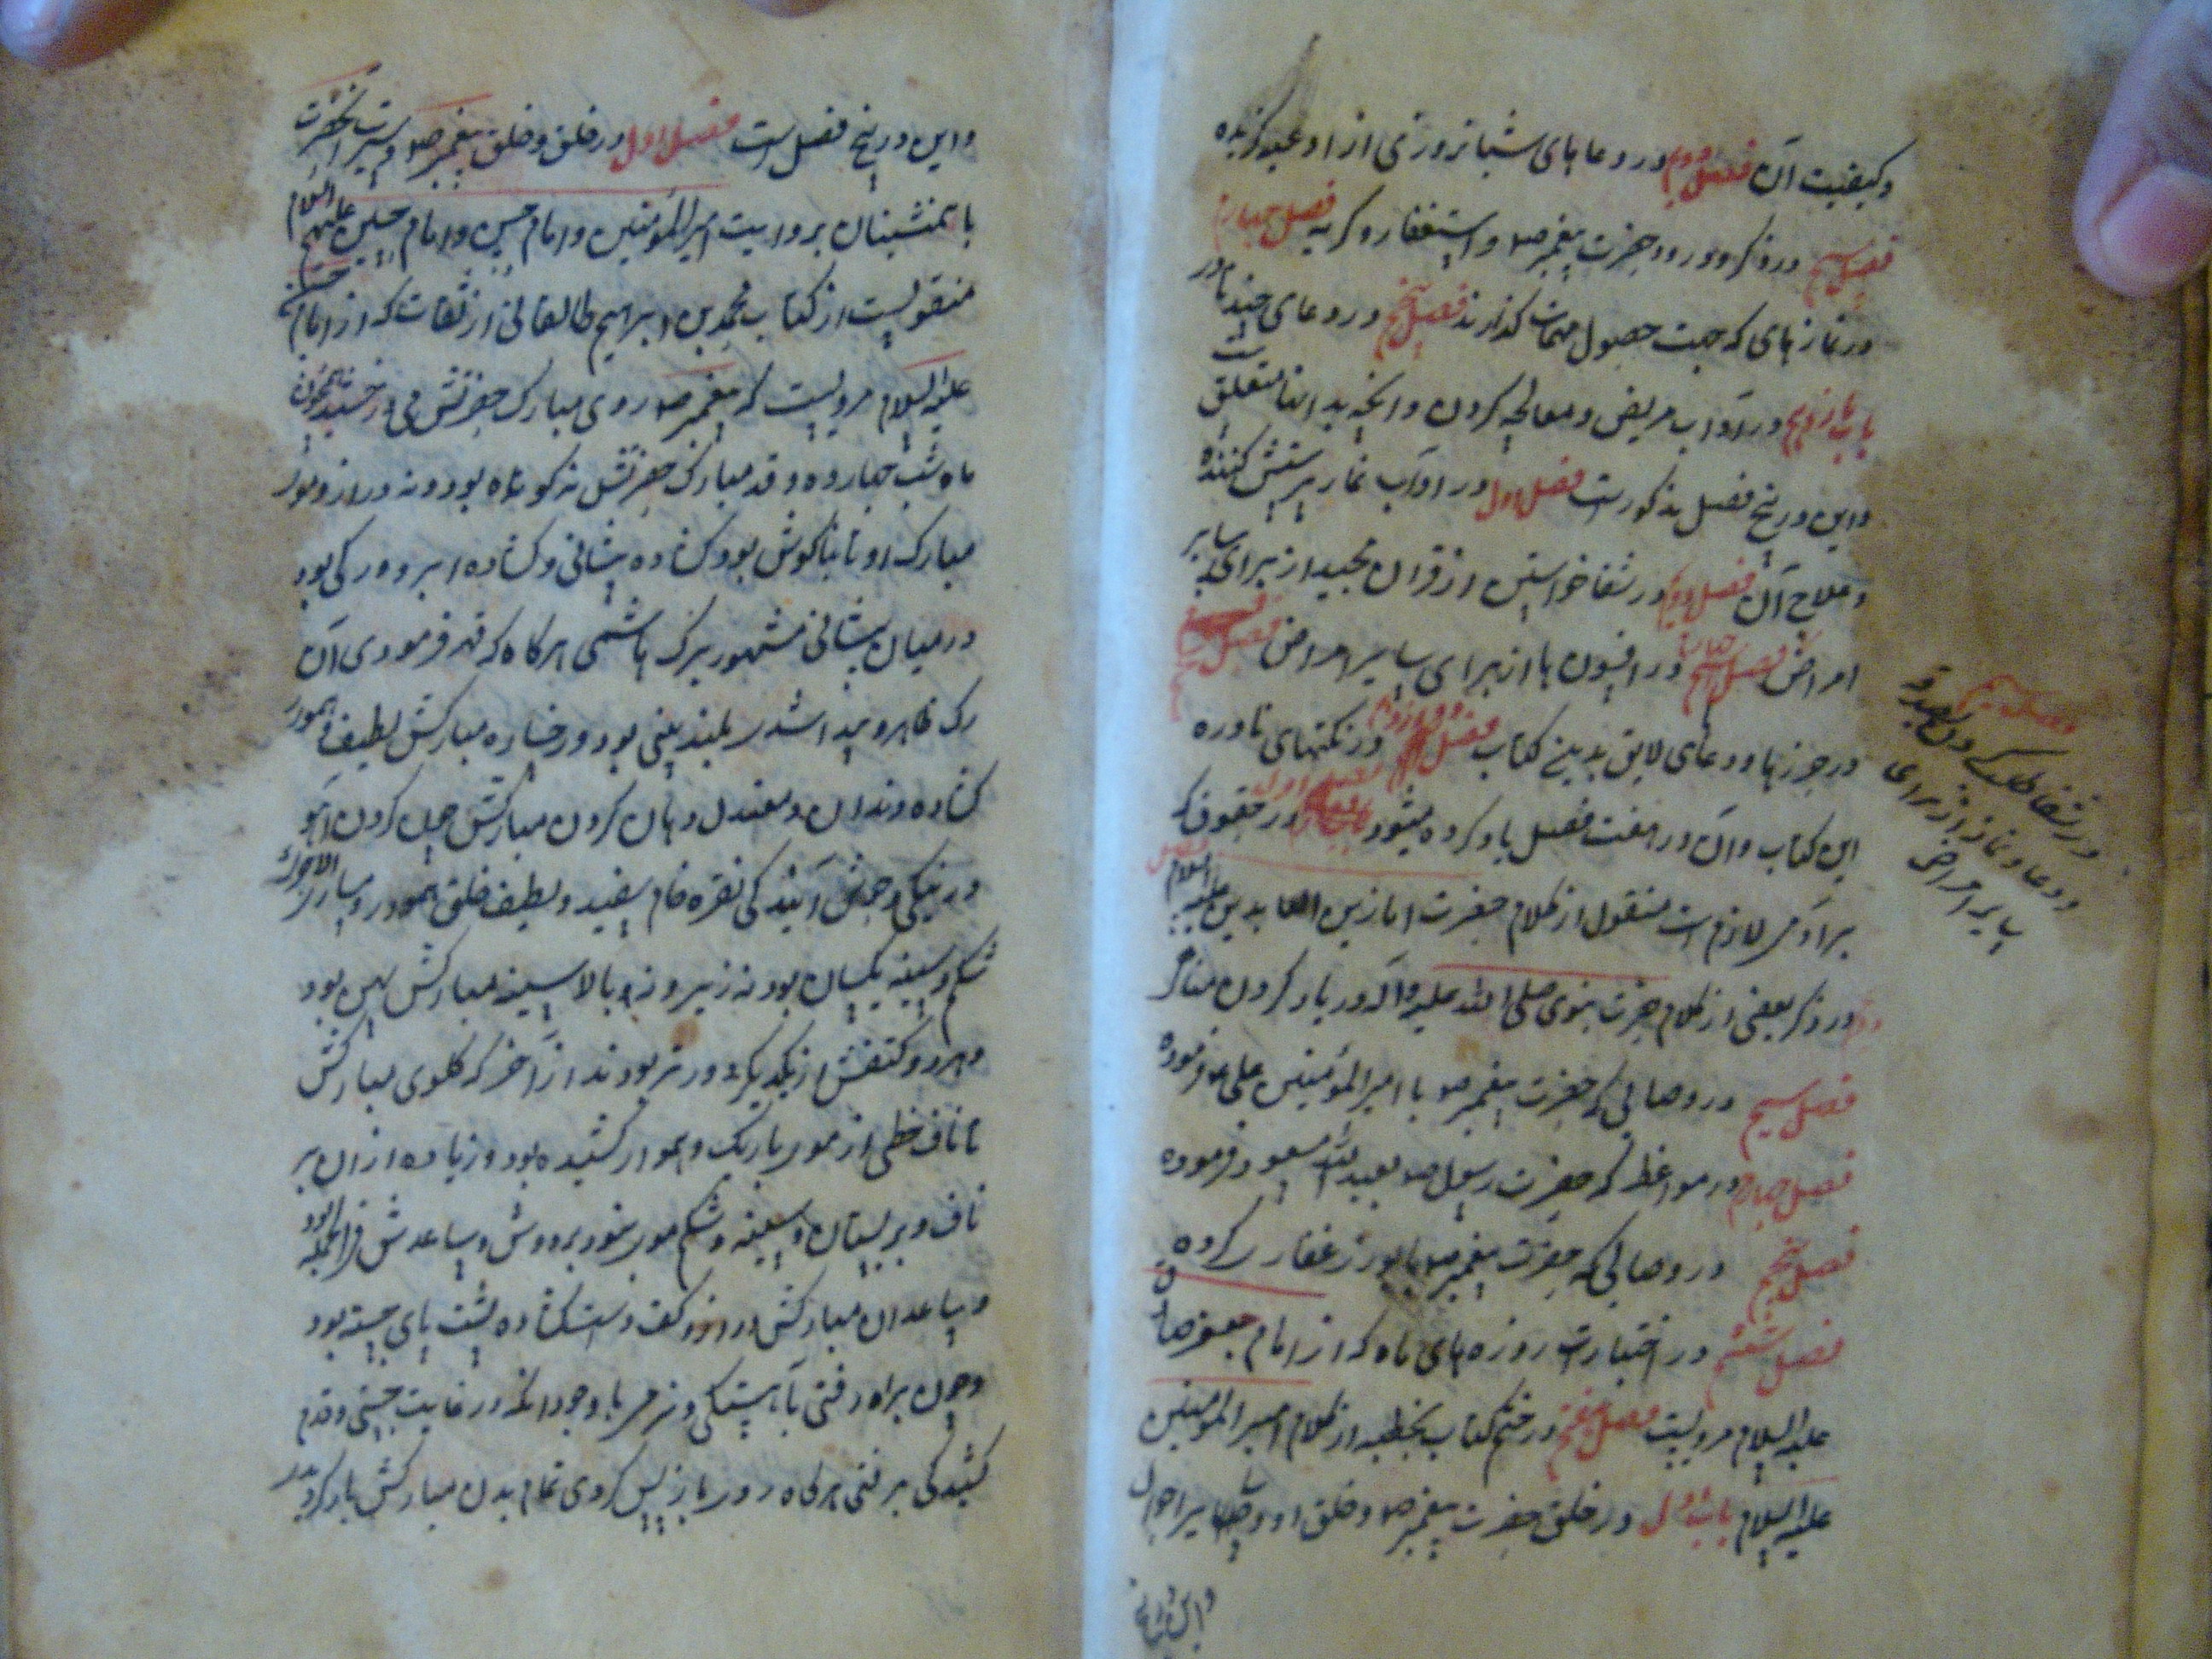 وکیفیت آن فصل دوم در دعاهای شبانروزی از ادعیه گزیده
فصل سیم در ذکر و درود حضرت پیغمبر ص و استغفار و گریه فصل چهارم
در نمازهای که جهت حصول مهمات گذارند فصل پنجم در دعای چند نادر
باب یازدهم در آداب مریض و معالجه کردن و آنچه بدانها متعلق ست
و این در پنج فصل مذکورست فصل اول در آداب بیمار پرستش کننده
و علاج آن فصل دویم در شفا خواستن از قرآن مجید از برای سایر
امراض فصل چهارم در افسون ها از برای سایر امراض فصل پنجم
در حرزها و دعای لایق بدین کتاب فصل دوازدهم در نکتهای نادره
این کتاب و آن در هفت فصل یاد کرده میشود فصل اول در حقوق که
بر آدمی لازم است منقول از کلام حضرت امام زین العابدین علیه السلام فصل
دوم در ذکر بعضی از کلام حضرت نبوی صلی الله علیه و آله در یاد کردن مناکر
فصل سیم در وصایائی که حضرت پیغمبر ص با امیر المؤمنین علی ع فرموده
فصل چهارم در مواعظ که حضرت رسول ص بعبد الله مسعود فرموده
فصل پنجم در وصایائی که حضرت پیغمبر ص با ابوذر غفاری کرده
فصل ششم در اختیارات روزهای ماه که از امام جعفر صادق
علیه السلام مرویست فصل هفتم در ختم کتاب بخطبه از کلام امیر المومنین
علیه السلام باب اول در خلق حضرت پیغمبر ص و خلق او و سایر احوال
و این در پنج
فصل سیم
در شفا طلب کردن بصدقه
و دعا و نماز از برای
سایر امراض
و این در پنج فصل است فصل اول در خلق و خلق پیغمبر ص و سیرت آنحضرت
با همنشینان بروایت امیر المؤمنین و امام حسن و امام حسین علیهم السلام
منقولست از کتاب محمد بن ابراهیم طالقانی از ثقات که از امام حسن
علیه السلام مرویست که پیغمبر ص روی مبارک حضرتش می درخشید همچون
ماه شب چهارده و قد مبارک حضرتش نه کوتاه بود و نه دراز و موی
مبارک او تا بناگوش بود گشاده پیشانی و گشاده ابرو و رگی بود
در میان پیشانی مشهور برگ هاشمی هر گاه که قهر فرمودی آن
رگ ظاهر و پیدا شدی بلند بینی بود و رخساره مبارکش لطیف و هموار
گشاده دندان و معتدل دهان گردن مبارکش چون گردن آهو
در نیکی و چنان آیند کی نقره خام سفید و لطیف خلق
شکم و سینه یکسان بود نه زیر و نه بالا سینه مبارکش پهن بود
و هر دو کتفش از یکدیگر دورتر بودند از آخر که گلوی مبارکش
تا ناف خطی از موی باریک و هموار کشیده بود و زیاده از آن بر
ناف و بر پستان و سینه و شکم موی نبود بر دوش و ساعدش فی الجمله بود
و ساعدان مبارکش دراز و کف دست گشاده پشت پای چسته بود
و چون براه رفتی بآهستگی و نرمی با وجود آنکه در غایت چستی و قدم
کشیدگی برفتی هرگاه روی باز پس کردی تمام بدن مبارکش باز گردیدی